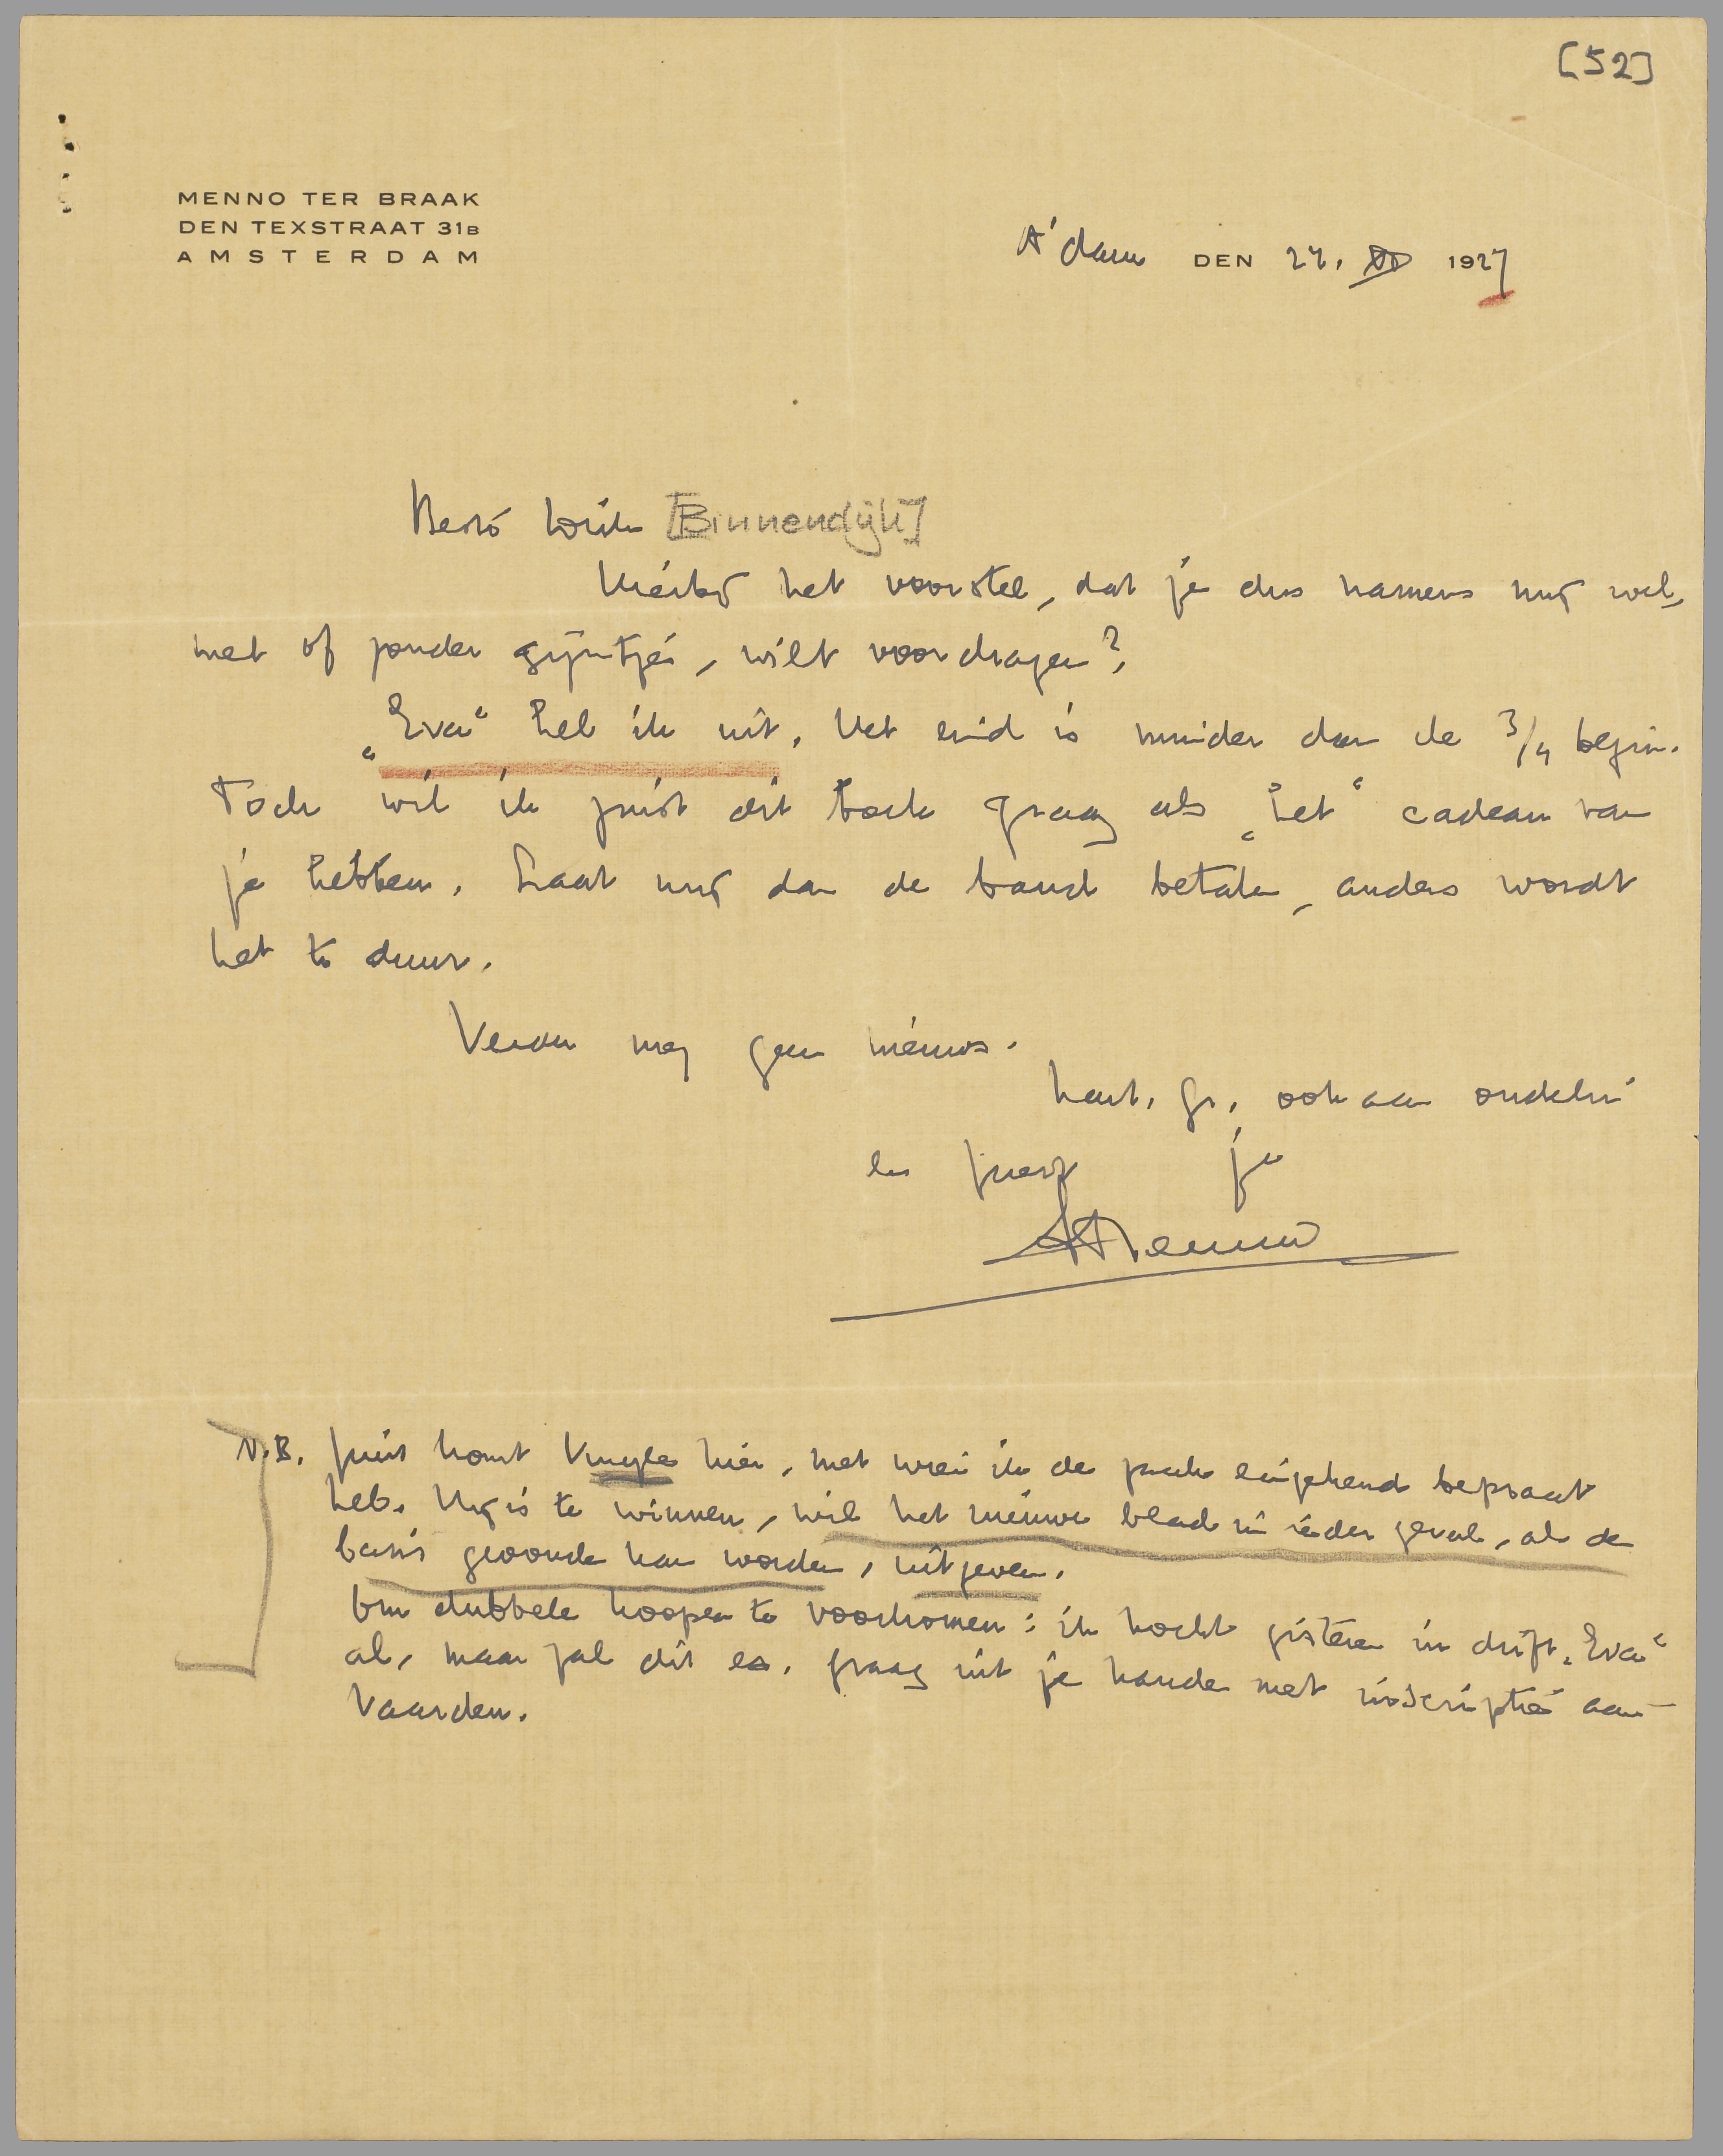 [52]
MENNO TER BRAAK
DEN TEXSTRAAT 31B
AMSTERDAM
A'dam DEN 22. XI 1927
Beste Dick [Binnendijk]
Hierbij het voorstel, dat je dus namens mij wel,
met of zonder grijntje, wilt voordragen?
„Eva“ heb ik uit. Het eind is minder dan de 3/4 begin.
Toch wil ik juist dit boek graag als „het“ cadeau van
je hebben. Laat mij dan de band betalen, anders wordt
het te duur.
Verder nog geen nieuws.
Hart. gr., ook aan ouders
en je
Menno
N.B. Juist komt hier, met wien ik de zaak eingehend bepraat
heb. Hij is te winnen, wil het nieuwe blad in ieder geval, als de
basis gevonden kan worden, uitgeven.
Om dubbele koopen te voorkomen: ik kocht gisteren in drift „Eva“
al, maar zal dit ex. graag uit je handen met inscriptie aan-
vaarden.